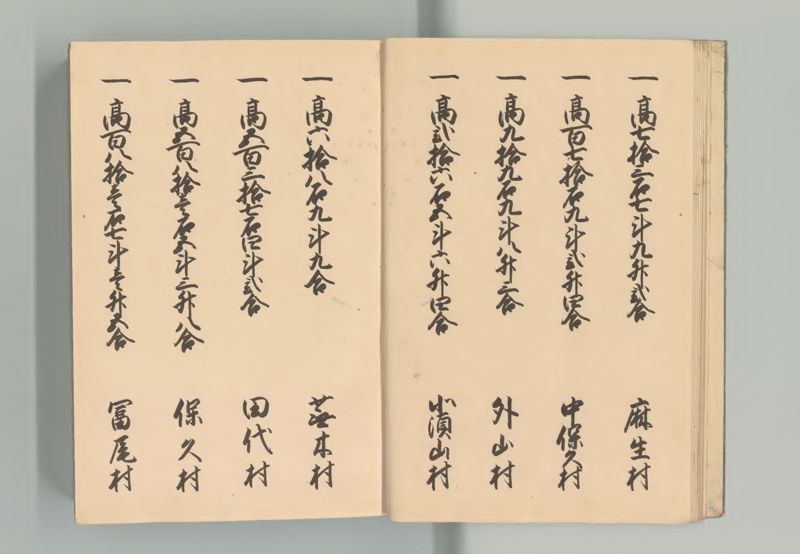 一 高七拾三石七斗九升弐合 麻生村
一 高百七拾石九斗弐升四合 中保久村
一 高九拾九石九斗八升三合 外山村
一 高弐拾六石五斗六升四合 小須山村
一 高六拾八石九斗九合 蕪木村
一 高五百三拾七石四斗弐合 田代村
一 高五百八拾壱石五斗三升八合 保久村
一 高百八拾壱石七斗壱升五合 冨尾村